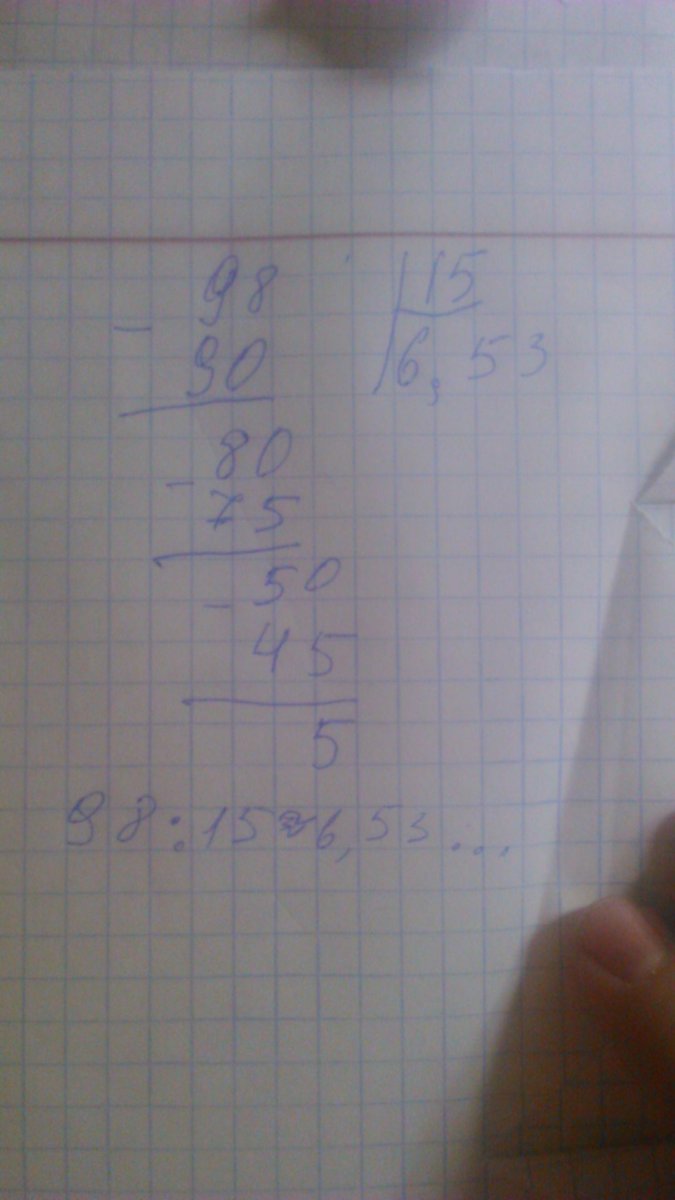 98 |15
- 90 |6,53
80
- 75
50
- 45
5
98:15≈6,53...